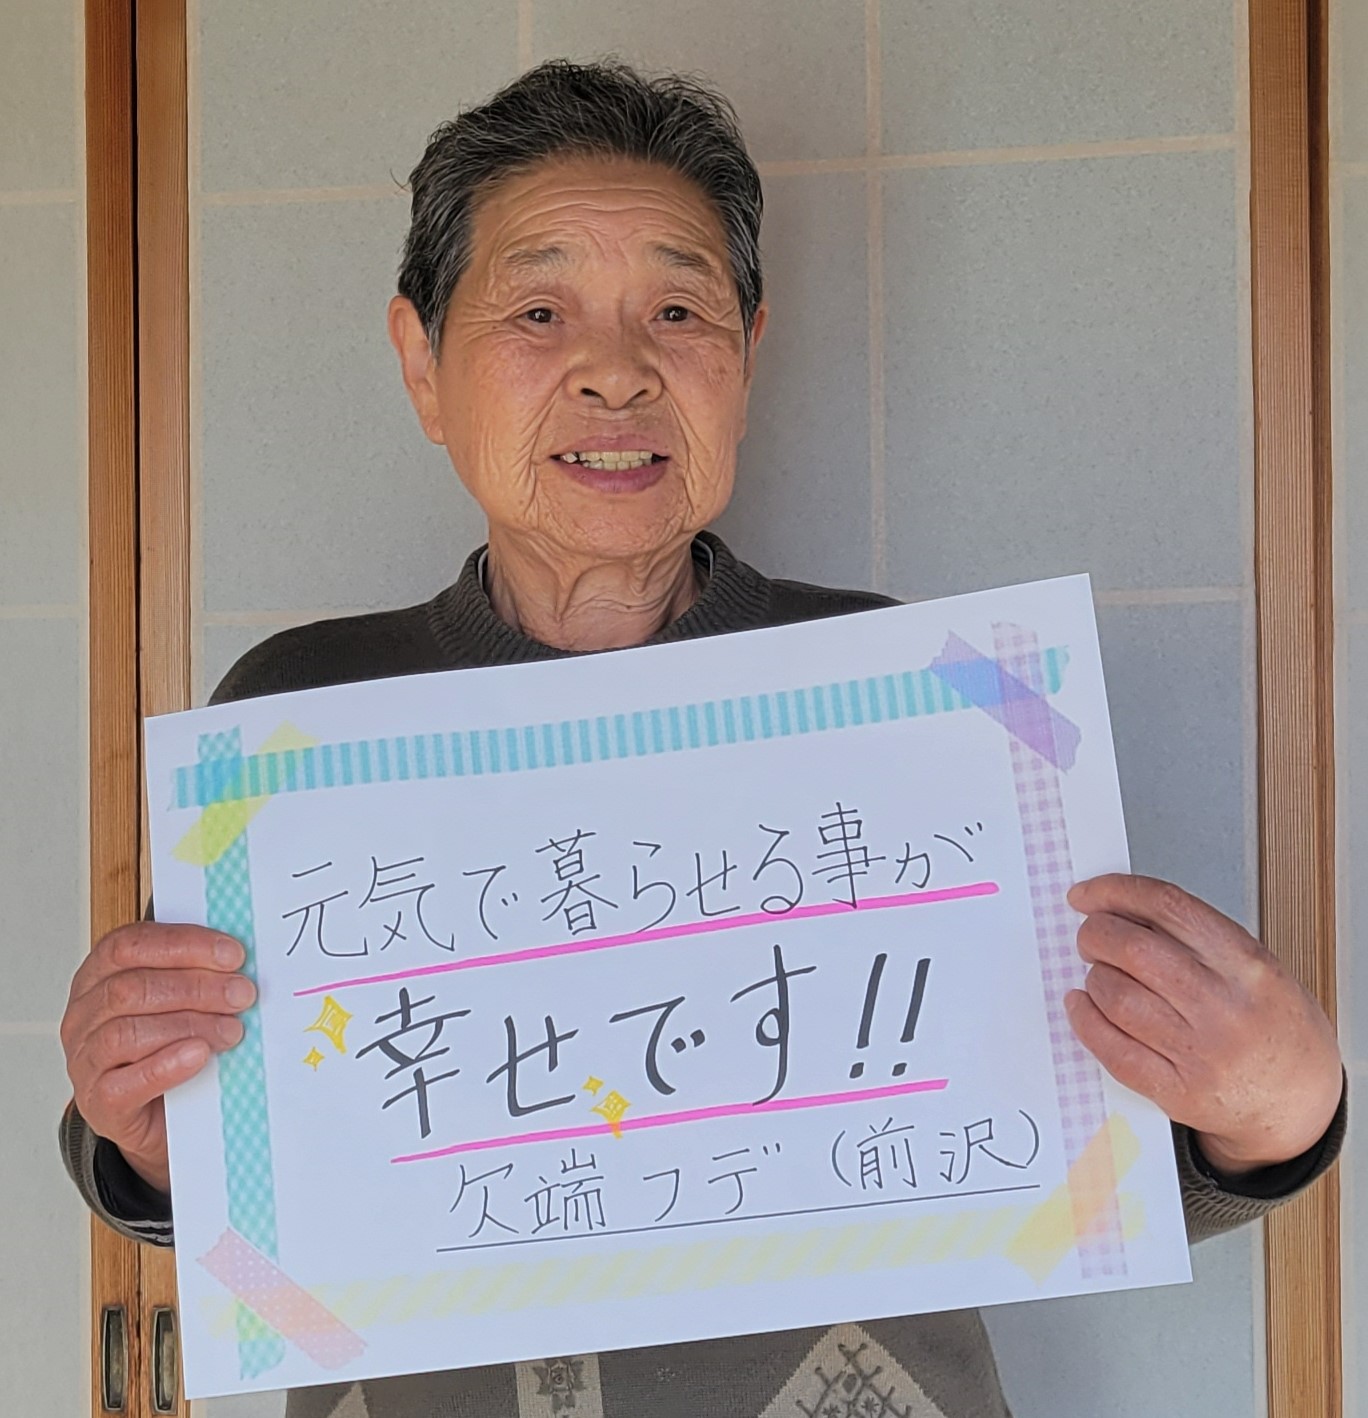 元気で暮らせる事が
幸せです!!
欠端フデ(前沢)